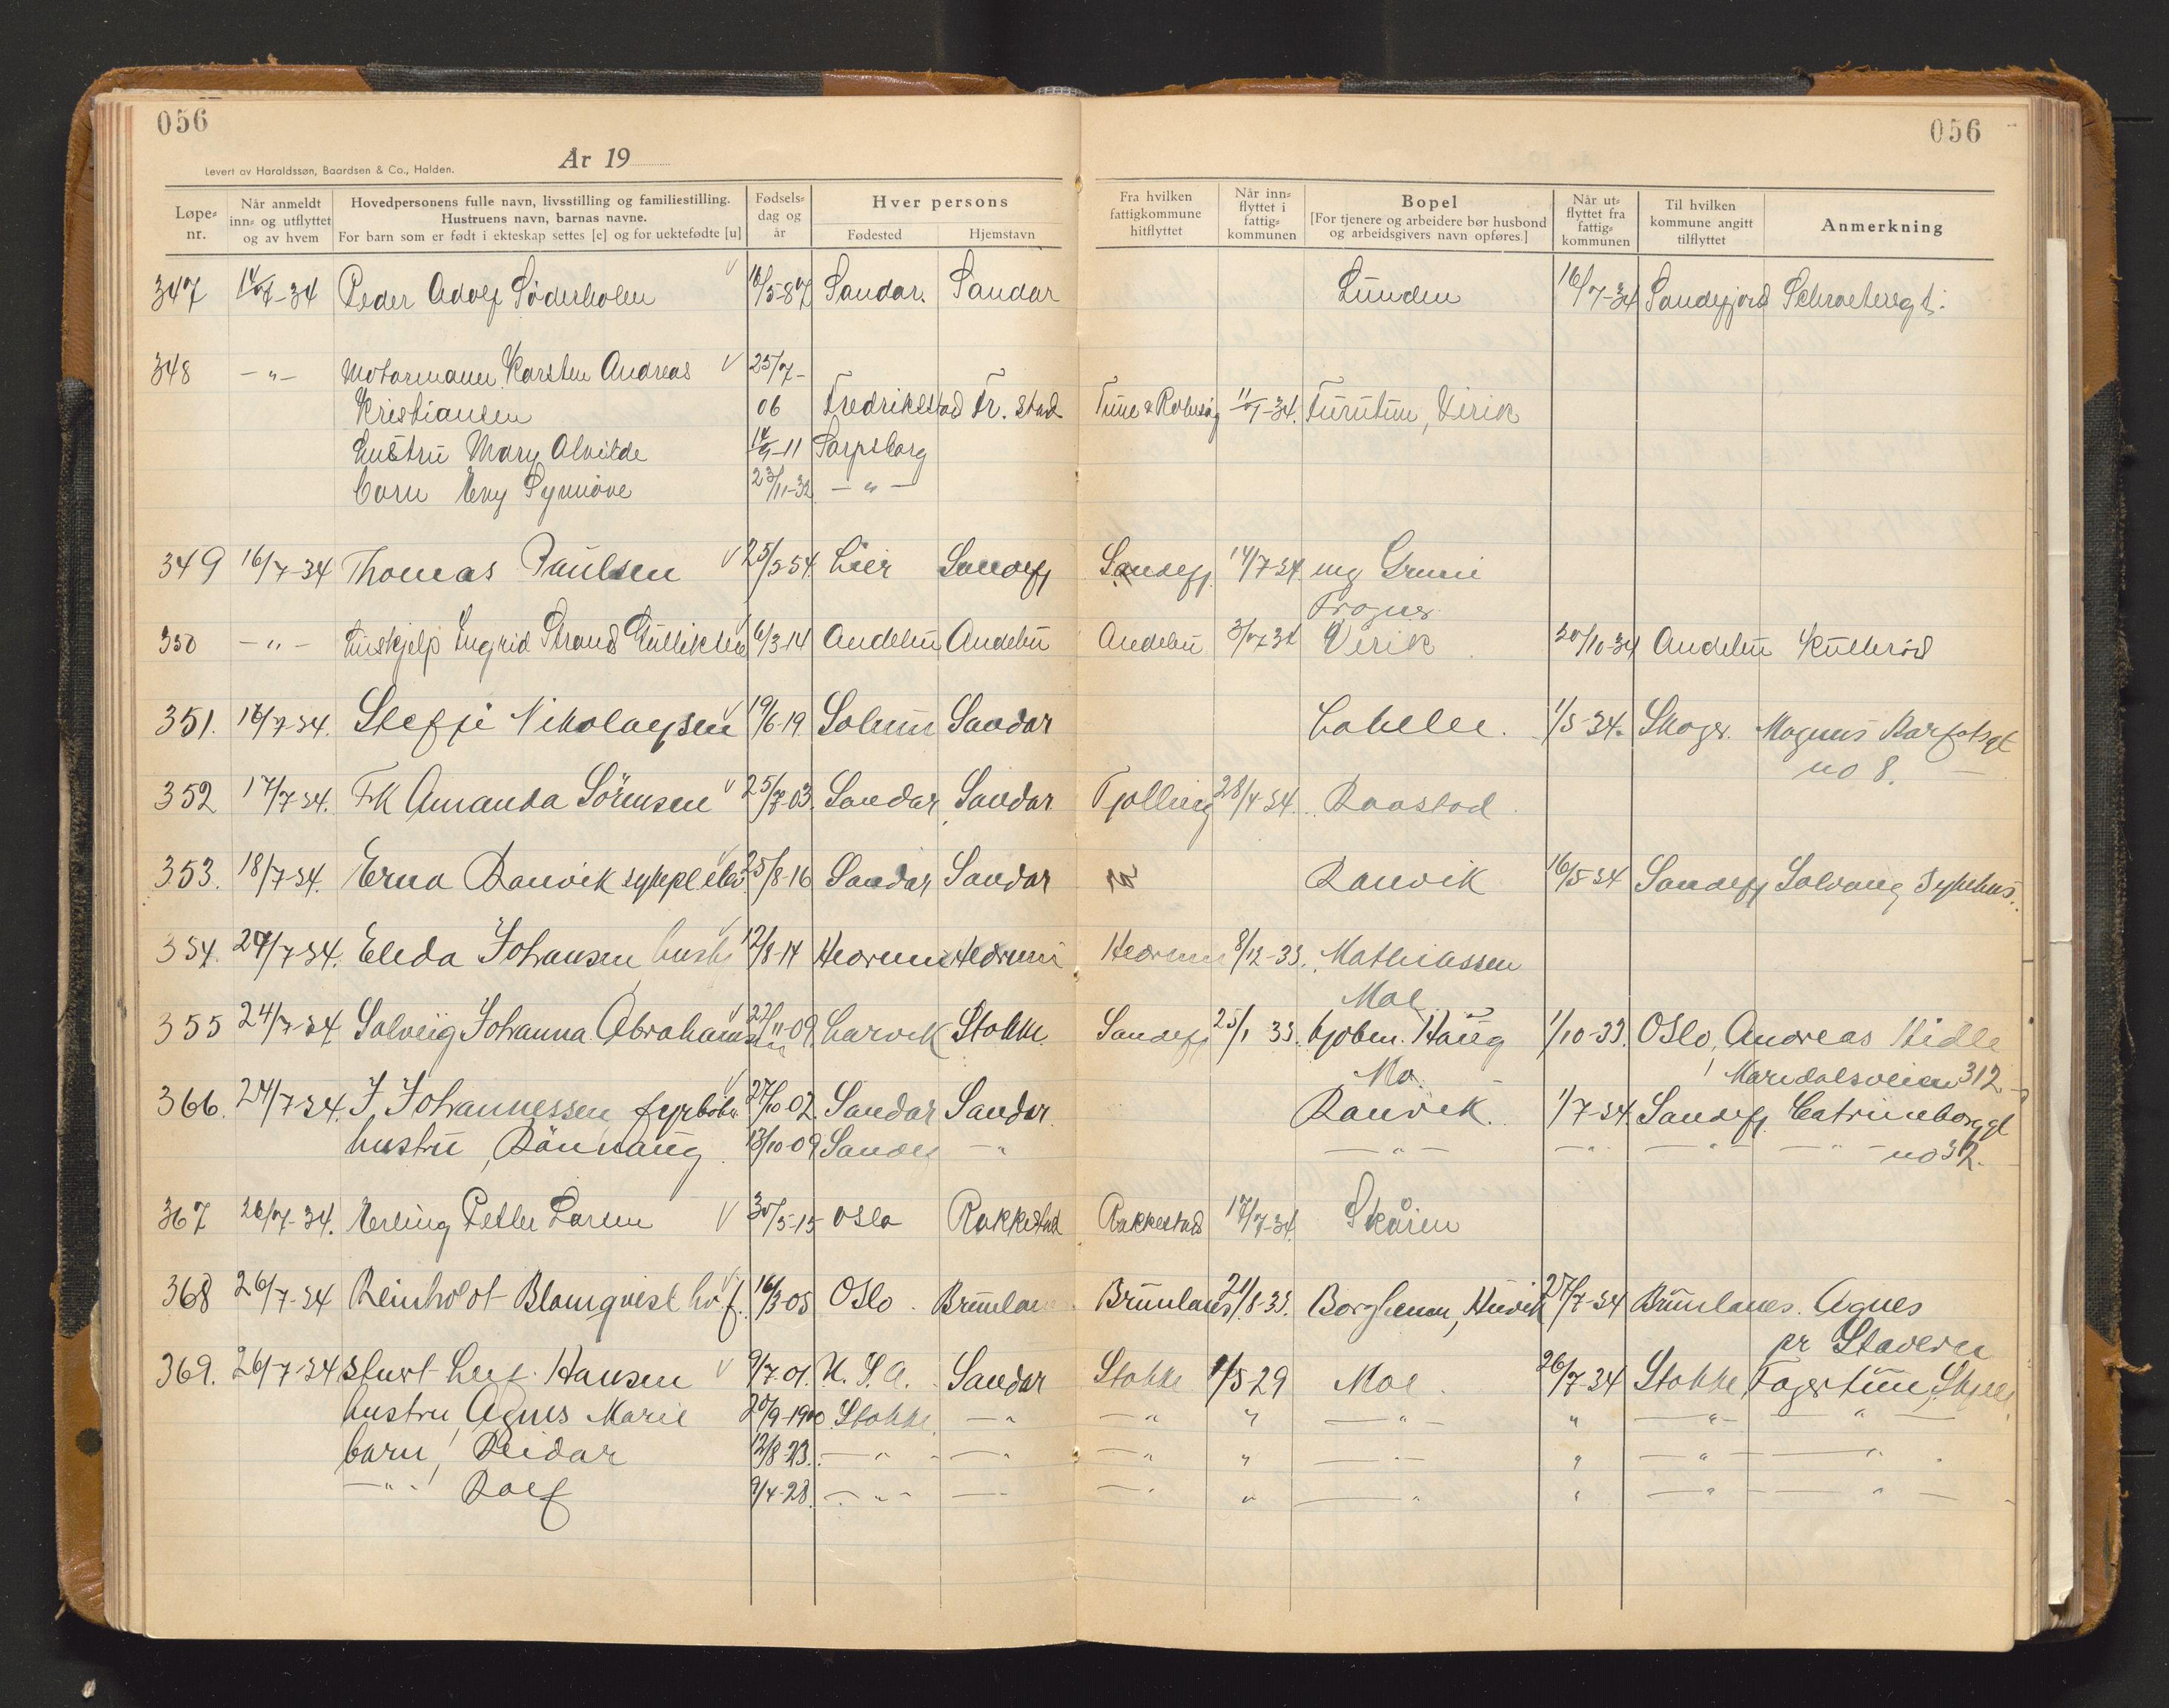 056
056
År 19
Levert av Haraldssøn, Baardsen & Co., Halden.
Løpe-nr. Når anmeldt inn- og utflyttet og av hvem Hovedpersonens fulle navn, livsstilling og familiestilling. Hustruens navn, barnas navne. For barn som er født i ekteskap settes [e] og for uektefødte [u] Fødsels-dag og år Hver persons Fødested Hjemstavn Fra hvilken fattigkommune hitflyttet Når inn-flyttet i fattig-kommunen Bopel [For tjenere og arbeidere bør husbond og arbeidsgivers navn opføres.] Når ut-flyttet fra fattig-kommunen Til hvilken kommune angitt tilflyttet Anmerkning
347 14/7-34 Peder Adolf Söderholm 16/5-87 Sandar. Sandar Lunden 16/7-34 Sandefjord Schrøtersgt.
348 -"- Motormann Karsten Andreas 25/7-
Kristiansen 06 Fredrikstad Fr. stad Tune & Rolvsøy 11/7-34. Furutun, Virik
hustru Mary Alvilde 14/9-11 Sarpsborg
barn Eny Synnöve 23/11-32 -"-
349 16/7-34 Thomas Paulsen 25/5-54 Lier Sandefj Sandefj. 14/7-34 Grini
Trogner
350 -"- Huskjelp Ingrid Strand Gulliksen 6/3-14 Andebu Andebu Andebu 3/7 34 Virik 20/10-34 Andebu
351. 16/7-34. Nikolaysen 19/6-19 Solum Sandar 1/5-34. Skoger. Magnus Barfotsgt
no 8.
352 17/7-34. Frk Amanda Sörensen 25/7-03. Sandar Sandar Tjölling 28/4-34. Raastad
353. 18/7-34. Erna Ranvik sykepl elev 25/8-16 Sandar Sandar Ranvik 16/5-34 Sandefj Solvang Sykehus.
354. 24/7-34. Elida Johansen hush 12/8-14 Hedrum Hedrum Hedrum 8/12-33. Mathiassen
Moe
355 24/7-34 Solveig Johanna Abrahamsen 22/11-09. Larvik Stokke Sandefj 25/1-33. kjøbm. Haug 1/10-33. Oslo, Andreas Hidle
Mo. Maridalsveien 312
366. 24/7-34. J. Johannessen fyrböter 27/10-02 Sandar Sandar. Ranvik. 1/7-34. Sandefj. Catrineborggt
hustru, Rönnaug 13/10-09 Sandef -"- -"- -"- -"- -"- no 32.
367 26/7-34. Erling Petter Larsen 30/5-15 Oslo Rakkestad Rakkestad 17/7-34. Skåren
368 26/7-34 Reinholdt Blomqvist hv.f. 16/3-05 Oslo. Brunlanes Brunlanes 21/8-33. Borgheim, Huvik 27/7-34 Brunlanes. Agnes
pr Stavern
369. 26/7-34 Leif Hansen 9/7-01. U.S.A. Sandar Stokke 1/5-29 Moe. 26/7-34 Stokke, Fagertun,
hustru, Agnes Marie 20/9-1900 Stokke. -"- -"- " -"- " -"- -"-
barn, Reidar 12/8-23. -"- -"- -"- " -"- " -"- -"-
-"- Rolf 9/4-28. -"- -"- -"- " -"- " -"- -"-